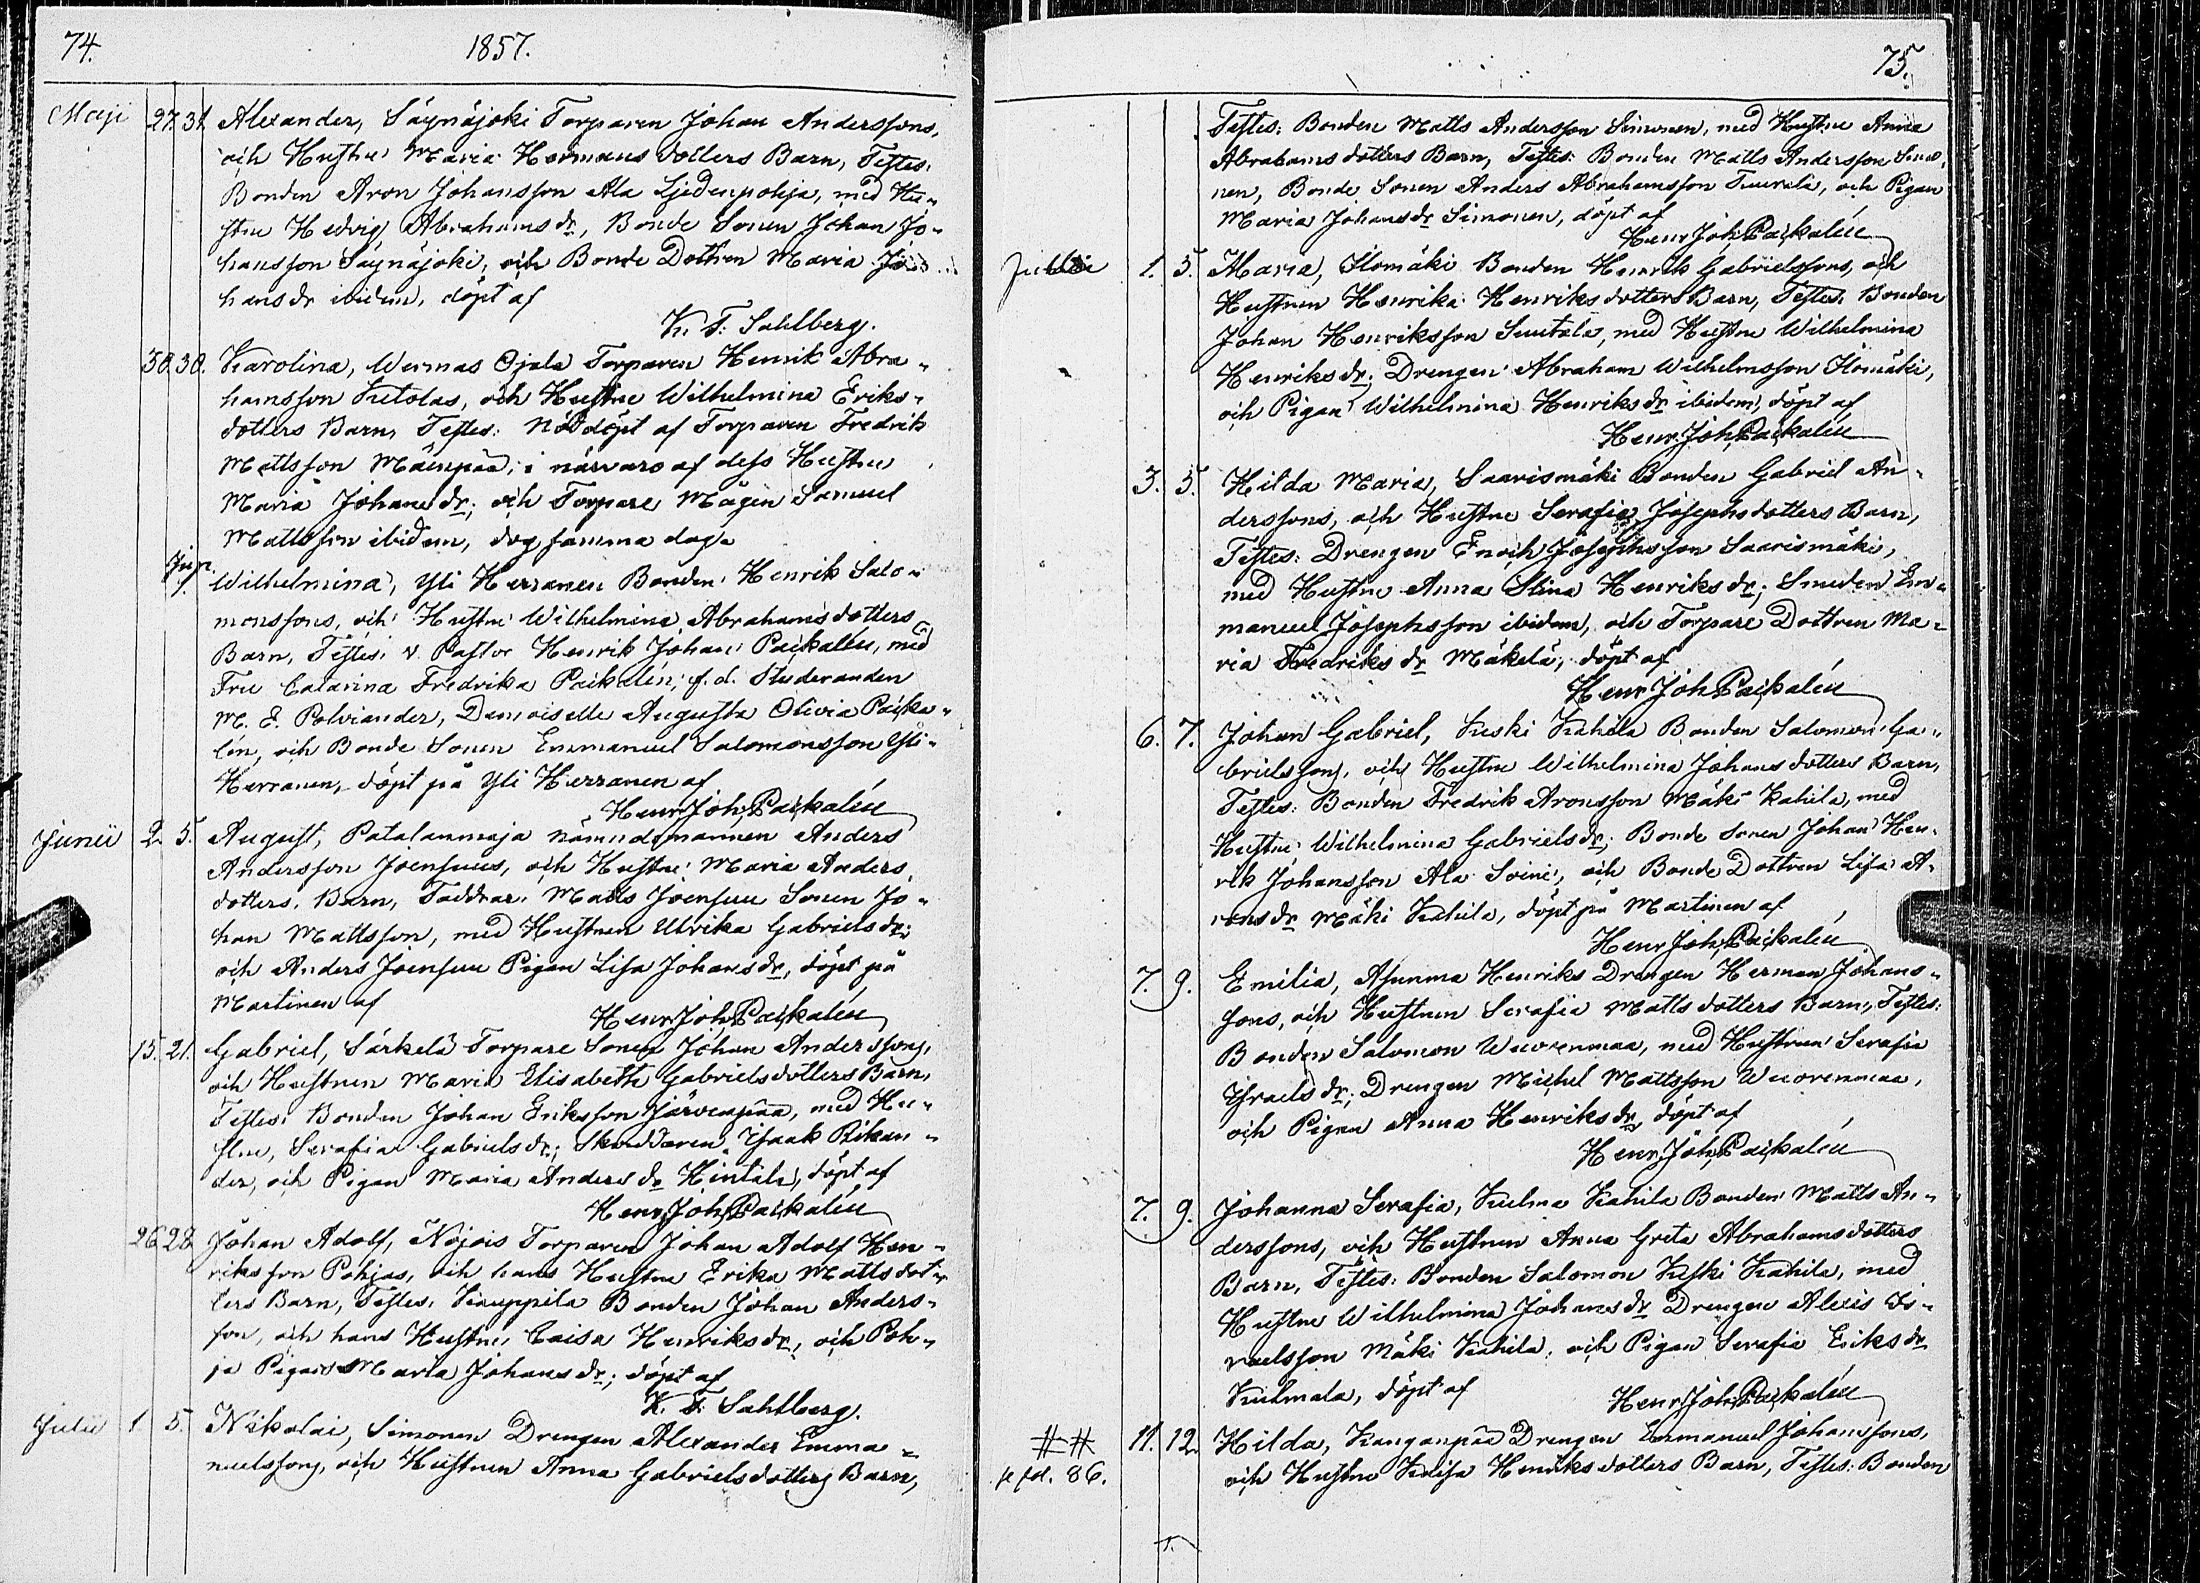 74.
1857.
Maji 27. 31. Alexander, Säynäjoki Torparen Johan Anderssons,
och Hustru Maria Hermans dotters Barn, Testes:
Bonden Aron Johansson Ala Ljedenpohja, med Hu-
stru Hedvig Abrahams dr, Bonde Sonen Johan Jo-
hansson Säynäjoki, och Bonde Dottren Maria Jo-
hans dr ibidem, döpt af
K. F. Sahlberg.
30. 30. Karolina, Wermas Ojala Torparen Henrik Abra-
hamsson Ketolas, och Hustru Wilhelmina Eriks-
dotters Barn, Testes: Nöddöpt af Torparen Fredrik
Mattsson Mäenpää, i närvaro af dess Hustru
Maria Johans dr; och Torpare Mågen Samuel
Mattsson ibidem, dog samma dag.
Jun. 1. Wilhelmina, Yli Herranen Bonden Henrik Salo-
monssons, och Hustru Wilhelmina Abrahams dotters
Barn, Testes: v. Pastor Henrik Johan Paikalén, med
Fru Catarina Fredrika Paikalén; f. d. Studeranden
M. E. Polviander, Demoiselle Augusta Olivia Paika-
lén, och Bonde Sonen Emmanuel Salomonsson Yli-
Herranen, döpt på Yli Herranen af
Henr. Joh. Paikalén
Junii 2. 5. August, Patalanmaja Nämndemannen Anders
Andersson Joensuus, och Hustru Maria Anders
dotters Barn, Faddrar: Matts Joensuu Sonen Jo-
han Mattsson, med Hustrun Ulrika Gabriels dr;
och Anders Joensuu Pigan Lisa Johans dr, döpt på
Martinen af
Henr. Joh. Paikalén
15. 21. Gabriel, Särkelä Torpare Sonen Johan Anderssons,
och Hustrun Maria Elisabeth Gabriels dotters Barn,
Testes: Bonden Johan Eriksson Järvenpää, med Hu-
stru, Serafia Gabriels dr; Skräddaren Isaak Rikan-
der, och Pigan Maria Anders dr Hintala, döpt af
Henr. Joh. Paikalén
26. 28. Johan Adolf, Nojois Torparen Johan Adolf Hen-
riksson Pohjas, och hans Hustru Erika Matts dot-
ters Barn, Testes: Kauppila Bonden Johan Anders-
son, och hans Hustru Caisa Henriks dr, och Poh-
ja Pigan Maria Johans dr; döpt af
K. F. Sahlberg.
Julii 1 5. Nikolai, Simonen Drengen Alexander Emma-
nuelssons, och Hustrun Anna Gabriels dotters Barn,
75.
Testes: Bonden Matts Andersson Simonen, med Hustru Anna
Abrahams dotters Barn, Testes: Bonden Matts Andersson Simo-
nen, Bonde Sonen Anders Abrahamsson Tuurala, och Pigan
Maria Johans dr Simonen, döpt af
Henr. Joh. Paikalén
Julii 1. 5. Maria, Ilomäki Bonden Henrik Gabrielssons, och
Hustrun Henrika Henriks dotters Barn, Testes: Bonden
Johan Henriksson Suutala, med Hustru Wilhelmina
Henriks dr; Drengen Abraham Wilhelmsson Ilomäki,
och Pigan Wilhelmina Henriks dr ibidem, döpt af
Henr. Joh. Paikalén
3. 5. Hilda Maria, Saarismäki Bonden Gabriel An-
derssons, och Hustru Serafia Josephs dotters Barn,
Testes: Drengen Enoch Josephsson Saarismäki,
med Hustru Anna Stina Henriks dr; Smeden Em-
manuel Josephsson ibidem, och Torpare Dottren Ma-
ria Fredriks dr Mäkelä, döpt af
Henr. Joh. Paikalén
6. 7. Johan Gabriel, Keski Kahila Bonden Salomon Ga-
brielssons, och Hustru Wilhelmina Johans dotters Barn,
Testes: Bonden Fredrik Aronsson Mäki Kahila, med
Hustru Wilhelmina Gabriels dr; Bonde Sonen Johan Hen-
rik Johansson Ala Soini, och Bonde Dottren Lisa A-
rons dr Mäki Kahila, döpt på Martinen af
Henr. Joh. Paikalén
7. 9. Emilia, Asunma Henriks Drengen Herman Johans-
sons, och Hustrun Serafia Matts dotters Barn, Testes:
Bonden Salomon Wuorenmaa, med Hustrun Serafia
Israels dr; Drengen Michel Mattsson Wuorenmaa,
och Pigan Anna Henriks dr, döpt af
Henr. Joh. Paikalén
7. 9. Johanna Serafia, Kulma Kahila Bonden Matts An-
derssons, och Hustrun Anna Greta Abrahams dotters
Barn, Testes: Bonden Salomon Keski Kahila, med
Hustru Wilhelmina Johans dr Drengen Alexis Is-
raelsson Mäki Kahila, och Pigan Serafia Eriks dr
Kulmala, döpt af
Henr. Joh. Paikalén
11. 12. Hilda, Kanganpää Drengen Emmanuel Johanssons,
och Hustru Kaisa Henriks dotters Barn, Testes: Bonden
86.